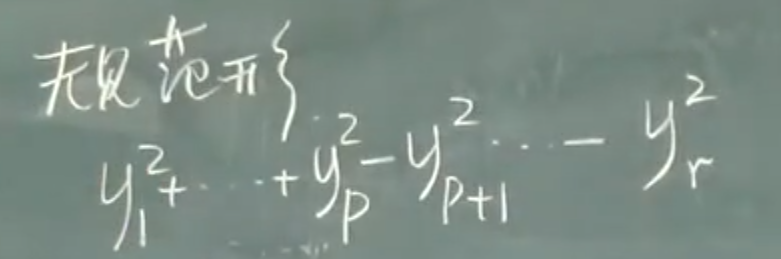 规范形
y₁²+⋯+y_p²−y_{p+1}²⋯−y_r²